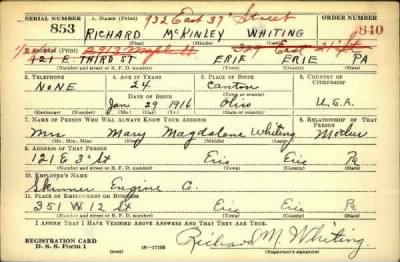 SERIAL NUMBER 1. NAME (Print) 932 East 39" Street ORDER NUMBER
853 RICHARD McKINLEY WHITING 840
(First) (Middle) (Last)
2913 Maple St 329 East 21st St
421 E. THIRD ST ERIE ERIE PA
(Number and street or R. F. D. number) (Town) (County) (State)
3. TELEPHONE 4. AGE IN YEARS 5. PLACE OF BIRTH 6. COUNTRY OF CITIZENSHIP
NONE 24 Canton
DATE OF BIRTH (Town or county)
Jan 29 1916 Ohio U.S.A.
(Exchange) (Number) (Mo.) (Day) (Yr.) (State or country)
7. NAME OF PERSON WHO WILL ALWAYS KNOW YOUR ADDRESS 8. RELATIONSHIP OF THAT PERSON
Mrs Mary Magdalene Whiting Mother
(Mr., Mrs., Miss) (First) (Middle) (Last)
9. ADDRESS OF THAT PERSON
121 E 3" St Erie Erie Pa
(Number and street or R. F. D. number) (Town) (County) (State)
10. EMPLOYER'S NAME
Skinner Engine Co.
11. PLACE OF EMPLOYMENT OR BUSINESS
351 W 12 St Erie Erie Pa
(Number and street or R. F. D. number) (Town) (County) (State)
I AFFIRM THAT I HAVE VERIFIED ABOVE ANSWERS AND THAT THEY ARE TRUE.
REGISTRATION CARD
D. S. S. Form 1 (over) 16—17105 Richard M. Whiting
(Registrant's signature)